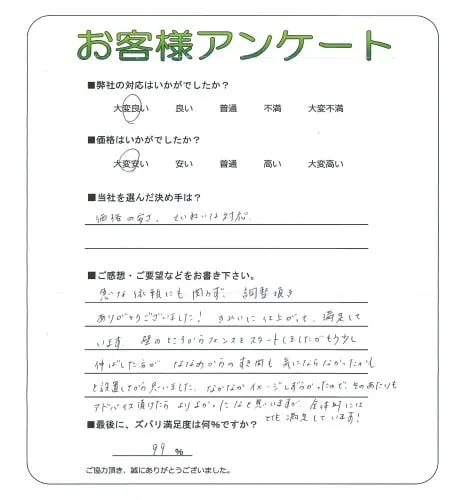 お客様アンケート
■弊社の対応はいかがでしたか？
大変良い 良い 普通 不満 大変不満
■価格はいかがでしたか？
大変安い 安い 普通 高い 大変高い
■当社を選んだ決め手は？
価格の安さ、ていねいな対応
■ご感想・ご要望などをお書き下さい。
急な依頼にも関わらず、調整頂き
ありがとうございました！きれいに仕上がって、満足して
います。壁のところからフェンスをスタートしましたがもう少し
伸ばした方が ななめからのすき間も 気にならなかったかも
と設置してから思いました。なかなかイメージしずらかったので、そのあたりも
アドバイス頂けたら より よかったなと思いますが、全体的には
とても満足しています！
■最後に、ズバリ満足度は何%ですか？
99 %
ご協力頂き、誠にありがとうございました。